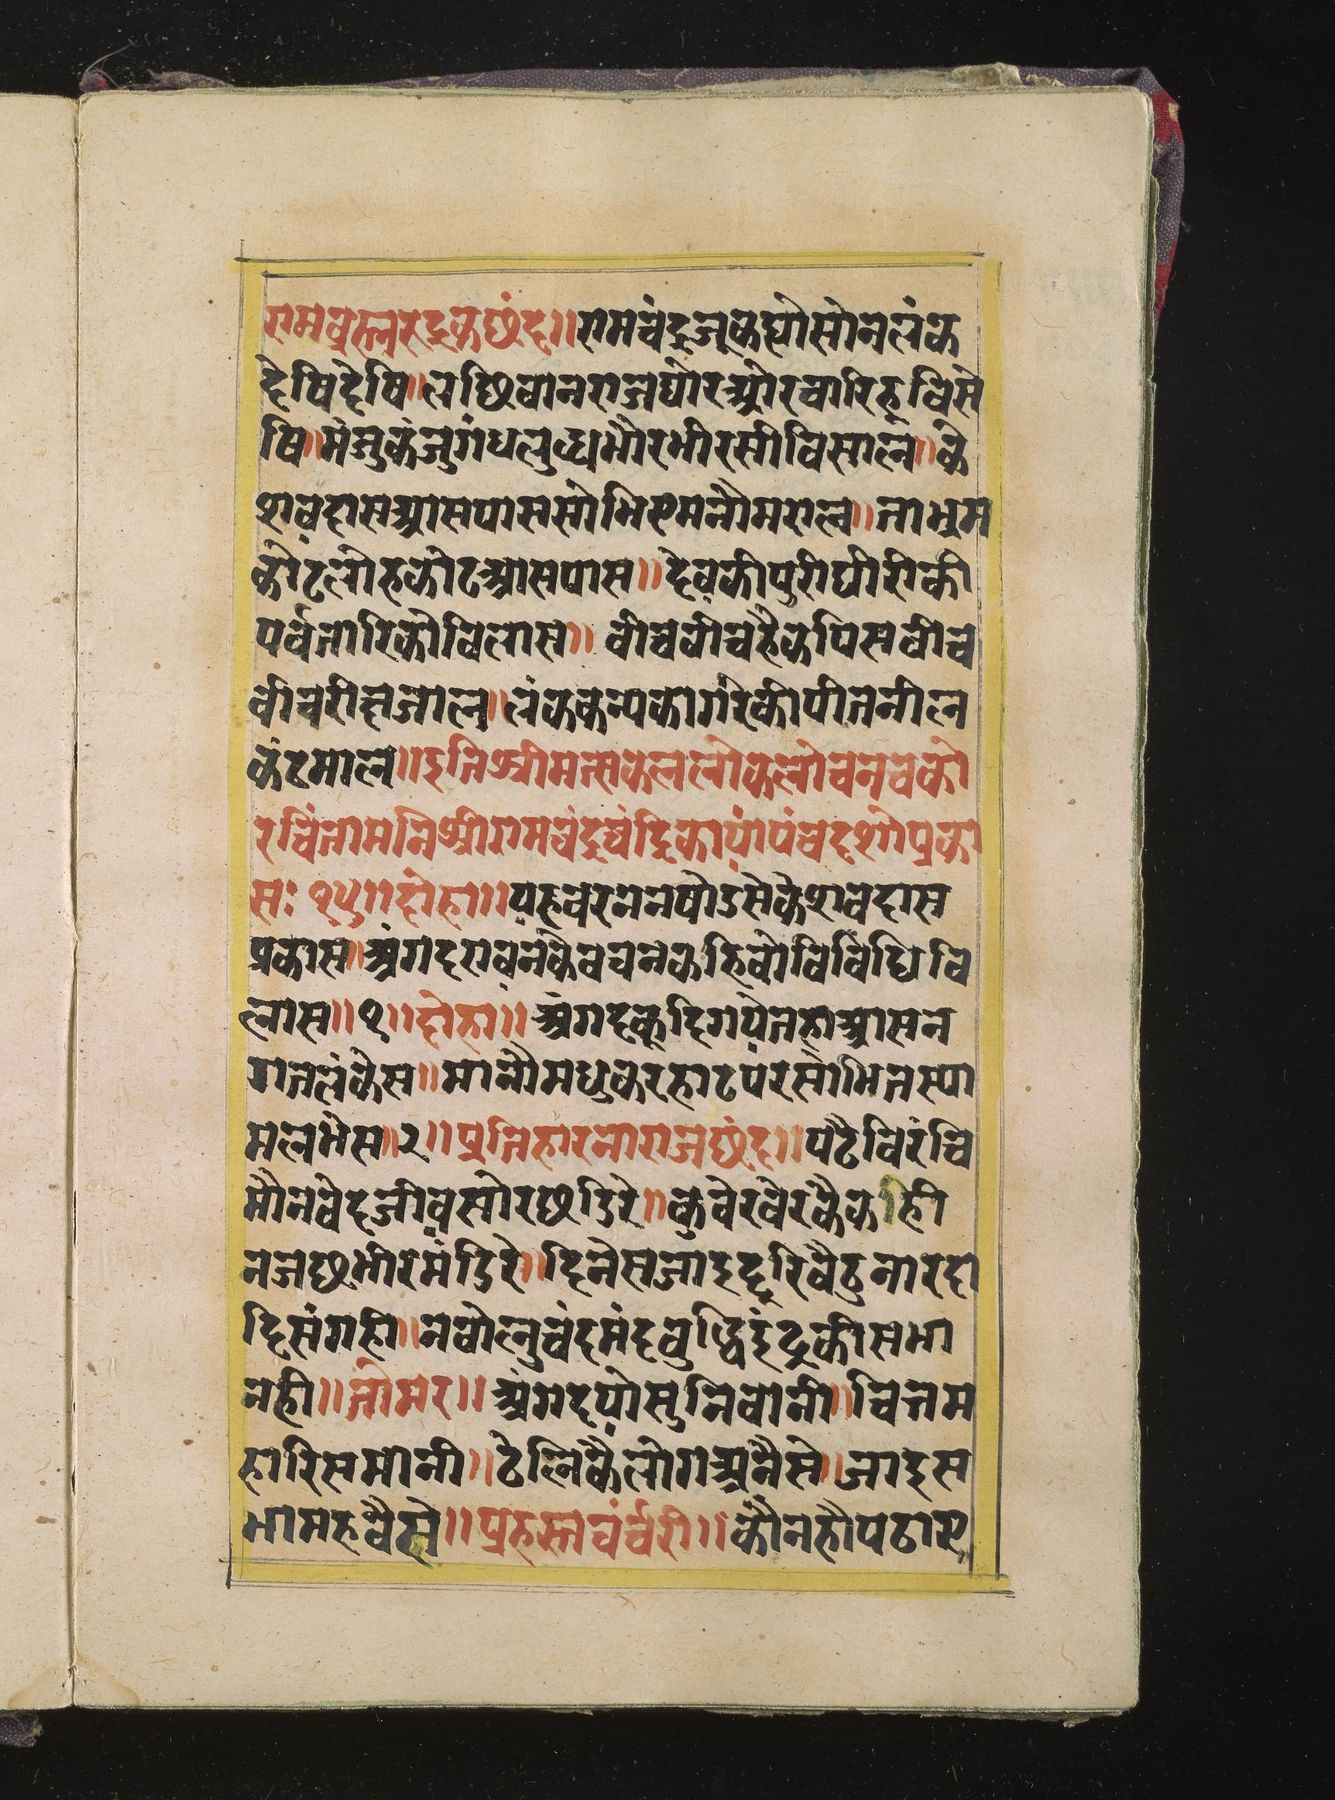 रामवस्तुरुद्रकछंद॥रामचंद्रजूकह्योसोनलंक
देषिदेषि॥लछिवानराजघोरओरचारिहूविसे
षि॥मंजुकंजुगंधलुब्धभौरभीरसीविसाल॥के
शवदासआसपाससोभिएमनौमराल॥ताभ्रम
कोटलोहकोटआसपास॥देवकीपुरीघीरीकी
पर्वतारिकोविलास॥वीचवीचहैकपिसवीच
वीचरीछजाल॥लंककन्यकागरेकीपीतनील
कंठमाल॥इतिश्रीमत्सकललोकलोचनचको
रचिंतामनिश्रीरामचंद्रचंद्रिकायांपंचदशोप्रका
सः१५॥दोहा॥यहवरननषोडसेकेशवदास
प्रकास॥अंगदरावनकैवचनकहिवोविविधिवि
लास॥१॥दोहा॥अंगदकूदिगयेतहाआसन
गतलंकेस॥मानौमधुकरहाटपरसोभितस्या
मलभेस॥२॥प्रतिहारनाराजछंद॥पढैविरंचि
मौनवेदजीवसोरछडिरे॥कुवेरवेरकैकही
नजछभीरमंडिरे॥दिनेसजाइदूरिवैठुनारदा
दिसंगही॥नवोलुचंदमंदवुद्धिइंद्रकीसभा
नही॥तोमर॥अंगदयोसुनिवानी॥चित्तम
हारिसमानी॥ठेलिकैलोगअनैसे॥जाइस
भामहवैसे॥प्रहस्तचर्चरी॥कौनहौपठाए